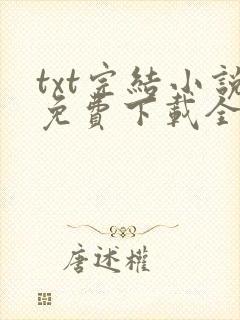 txt完結小說
免費下載全
唐述權